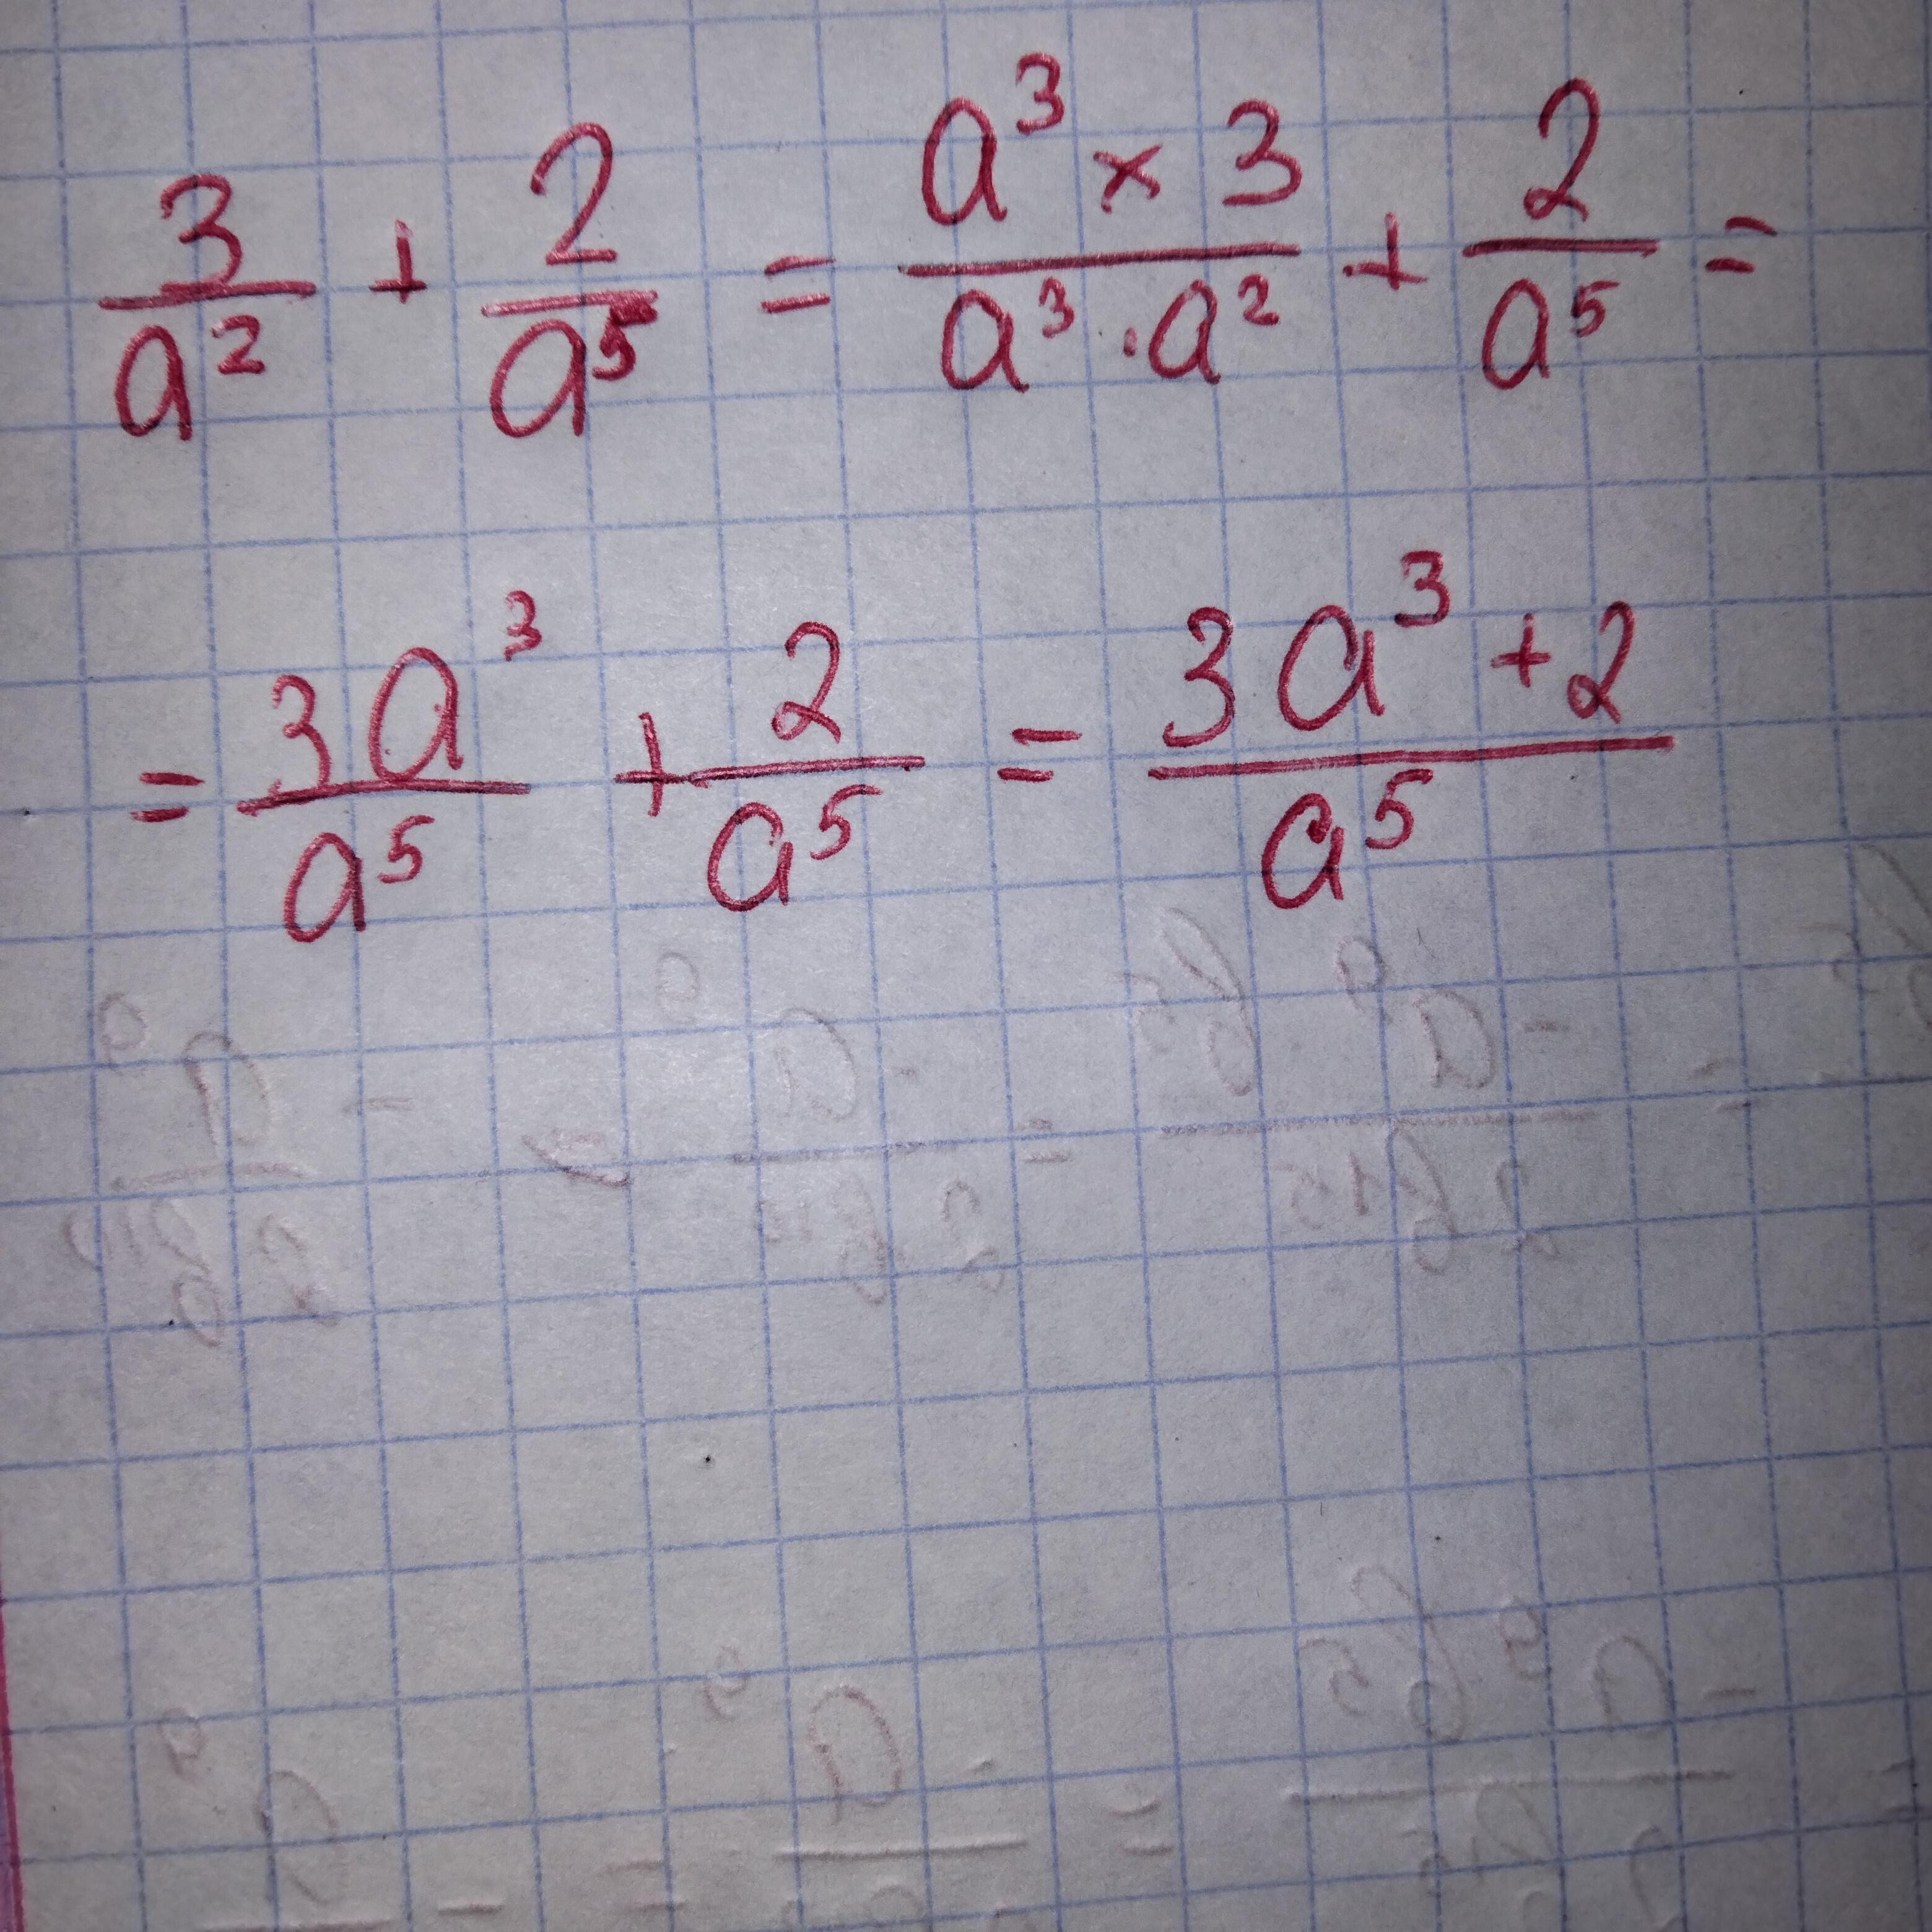 3/a² + 2/a⁵ = a³ × 3/a³ · a² + 2/a⁵ =
= 3a³/a⁵ + 2/a⁵ = 3a³ + 2/a⁵